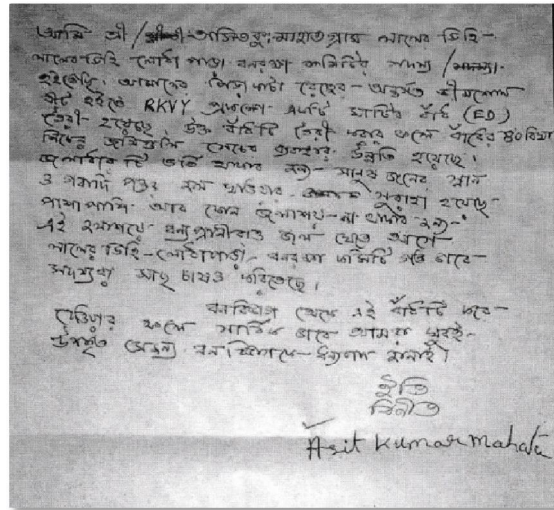 আমি শ্রী/শ্রীমতী অসিত কুঃ মাহাত গ্রাম লালের ডিহি-
লালের ডিহি লোধা পাড়া বনরক্ষা কমিটির সদস্য/সদস্যা
হইতেছি। আমাদের রেঞ্জের অন্তর্গত
বীট হইতে RKVY প্রকল্পে একটি মাটির বাঁধ (ED)
তৈরী হয়েছে উক্ত বাঁধটি তৈরী করার ফলে বাঁধের ৪০ বিঘা
নিচের জমিগুলি সেচের ব্যবস্থার উন্নতি হয়েছে।
জলাধারটি ভর্তি থাকার জন্য মানুষ জনের স্নান
ও গবাদি পশুর জল খাওয়ার সুরাহা হয়েছে-
পাশাপাশি আর কোন জলাশয় না থাকার জন্য-
এই জলাশয়ে বন্য প্রাণীরাও জল খেতে আসে
লালের ডিহি-লোধাপাড়া বনরক্ষা কমিটি ভাবে
সদস্যরা মাছ চাষও করিতেছে।
বনবিভাগ থেকে এই বাঁধটি করে
দেওয়ার ফলে সার্বিক ভাবে আমরা খুবই-
উপকৃত এজন্য বনবিভাগকে ধন্যবাদ জানাই।
ইতি
বিনীত
Asit Kumar Mahata